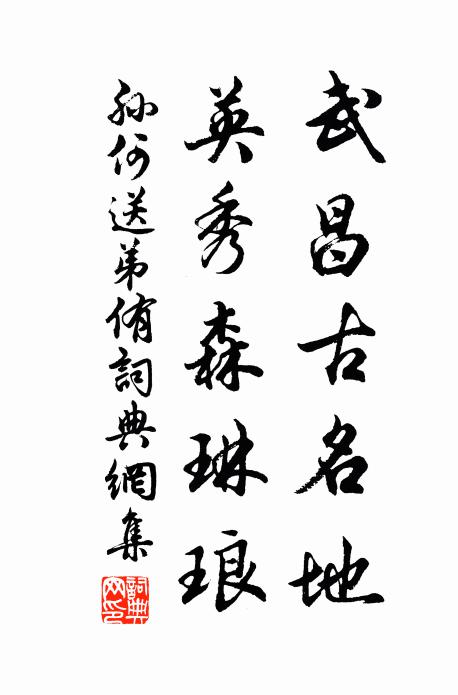 武昌古名地
英秀森琳琅
孫何送弟侑詞典網集
詞典網印